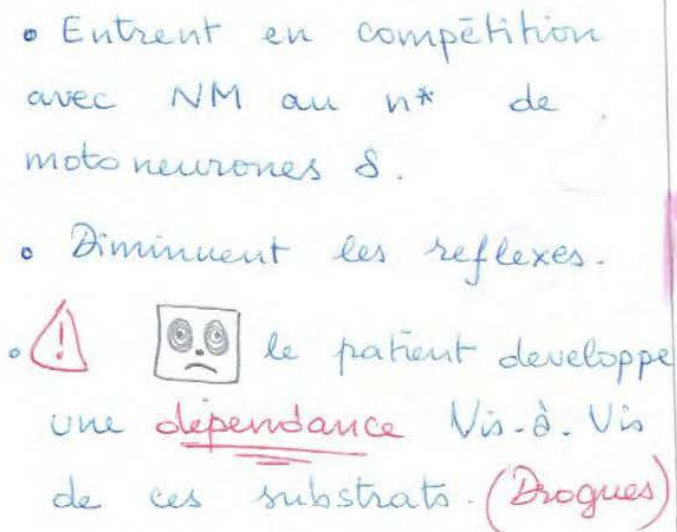 • Entrent en compétition
avec NM au n* de
motoneurones δ.
• Diminuent les reflexes.
• ! le patient developpe
une dépendance Vis-à-Vis
de ces substrats. (Drogues)